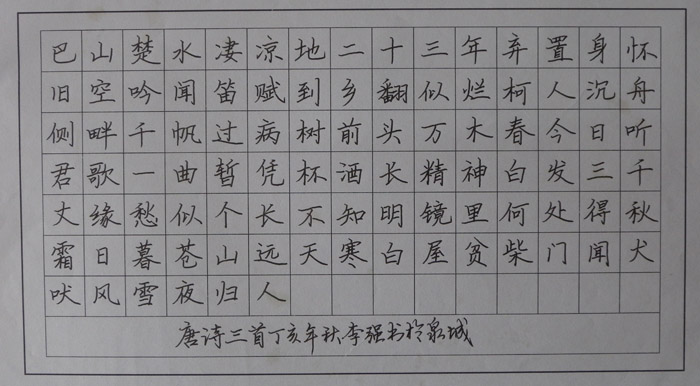 巴山楚水凄凉地二十三年弃置身怀
旧空吟闻笛赋到乡翻似烂柯人沉舟
侧畔千帆过病树前头万木春今日听
君歌一曲暂凭杯酒长精神白发三千
丈缘愁似个长不知明镜里何处得秋
霜日暮苍山远天寒白屋贫柴门闻犬
吠风雪夜归人
唐诗三首丁亥年秋李强书于泉城